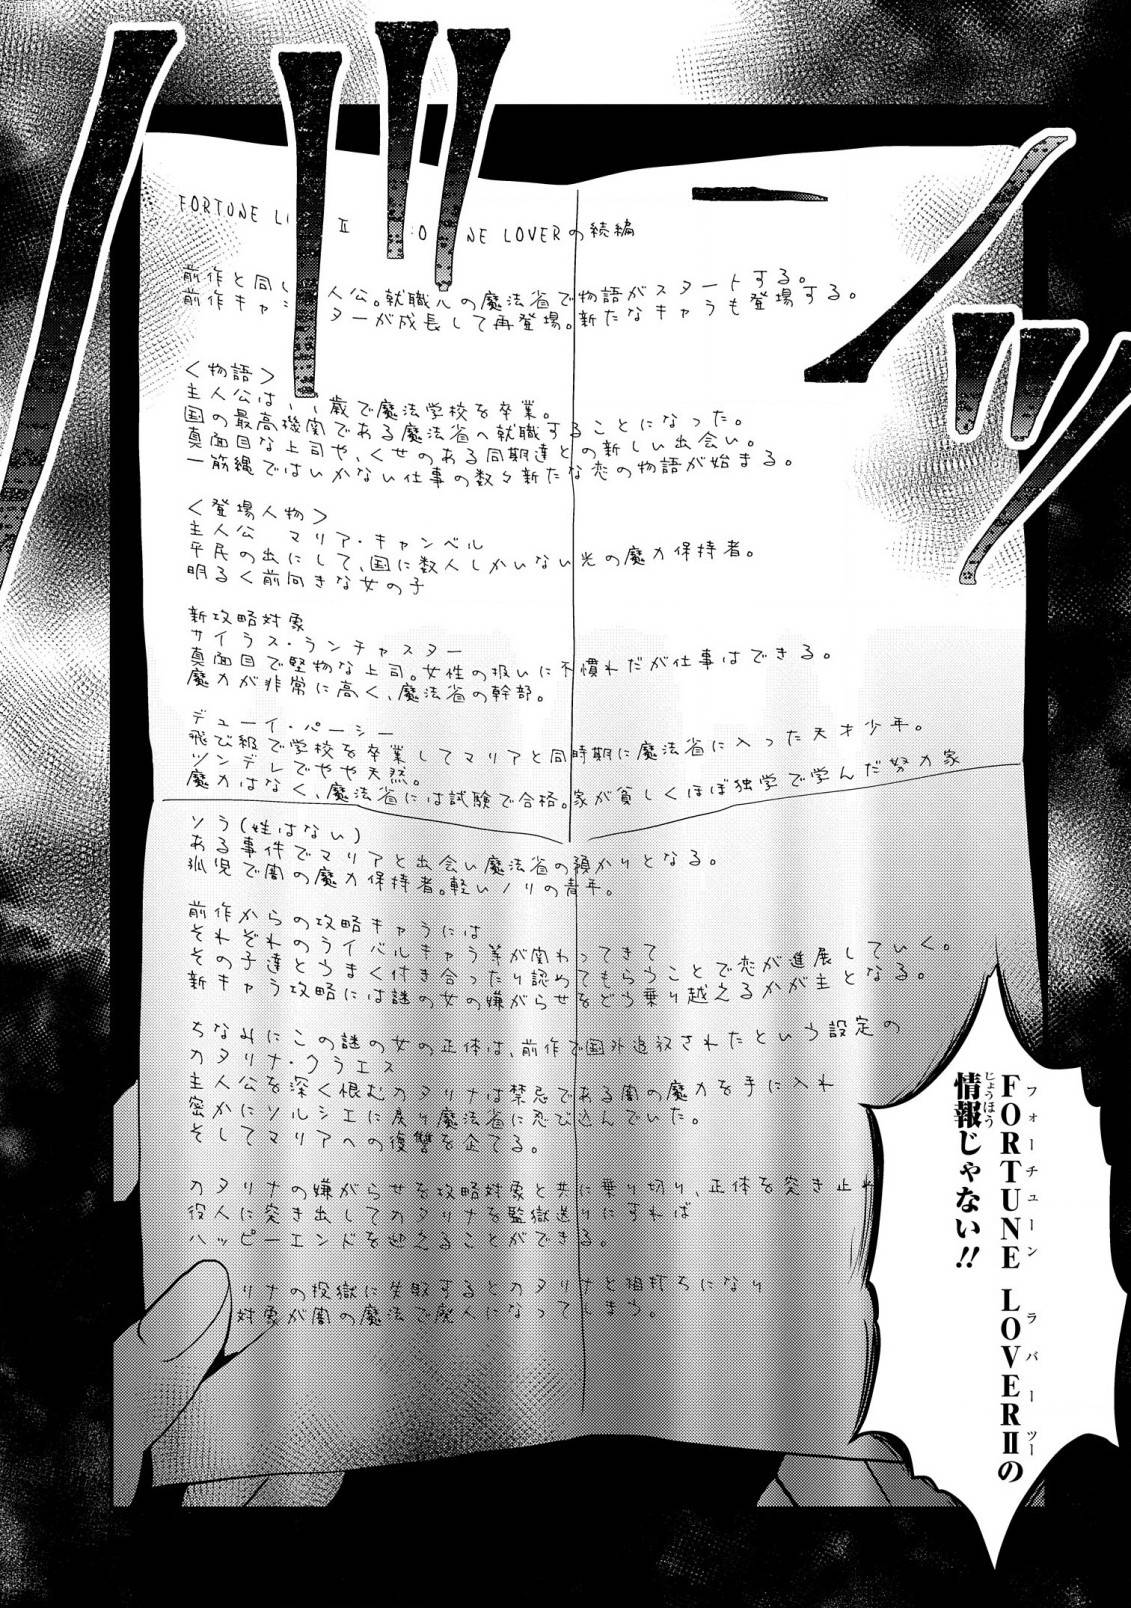 バーーンッッ
FORTUNE L II  O NE LOVERの続編
前作と同し 人公。就職ルの魔法省で物語がスタートする。
前作キャラ ターが成長して再登場。新たなキャラも登場する。
<物語>
主人公は、 歳で魔法学校を卒業。
国の最高機関である魔法省へ就職することになった。
真面目な上司や、くせのある同期達との新しい出会い。
一筋縄ではいかない仕事の数々新たな恋の物語が始まる。
<登場人物>
主人公 マリア・キャンベル
平民の出にして、国に数人しかいない光の魔力保持者。
明るく前向きな女の子
新攻略対象
サイラス・ランチャスター
真面目で堅物な上司。女性の扱いに不慣れだが仕事はできる。
魔力が非常に高く、魔法省の幹部。
デューイ・パーシー
飛び級で学校を卒業してマリアと同時期に魔法省に入った天才少年。
ツンデレでやや天然。
魔力はなく、魔法省には試験で合格。家が貧しくほぼ独学で学んだ努力家
ソラ(性はない)
ある事件でマリアと出会い魔法省の預かりとなる。
孤児で闇の魔力保持者。軽いノリの青年。
前作からの攻略キャラには
それぞれのライバルキャラ等が関わってきて
その子達とうまく付き合ったり認めてもらうことで恋が進展していく。
新キャラ攻略には謎の女の嫌がらせをどう乗り越えるかが主となる。
ちなみにこの謎の女の正体は、前作で国外追放されたという設定の
カタリナ・クラエス
主人公を深く恨むカタリナは禁忌である闇の魔力を手に入れ
密かにソルシエに戻り魔法省に忍び込んでいた。
そしてマリアへの復讐を企てる。
カタリナの嫌がらせを攻略対象と共に乗り切り、正体を突き止め
役人に突き出してカタリナを監獄送りにすれば
ハッピーエンドを迎えることができる。
リナの投獄に失敗するとカタリナと相打ちになり
対象が闇の魔法で廃人になってしまう。
FORTUNE LOVER Ⅱの
フォーチューン ラバー ツー
情報じゃない!!
じょうほう